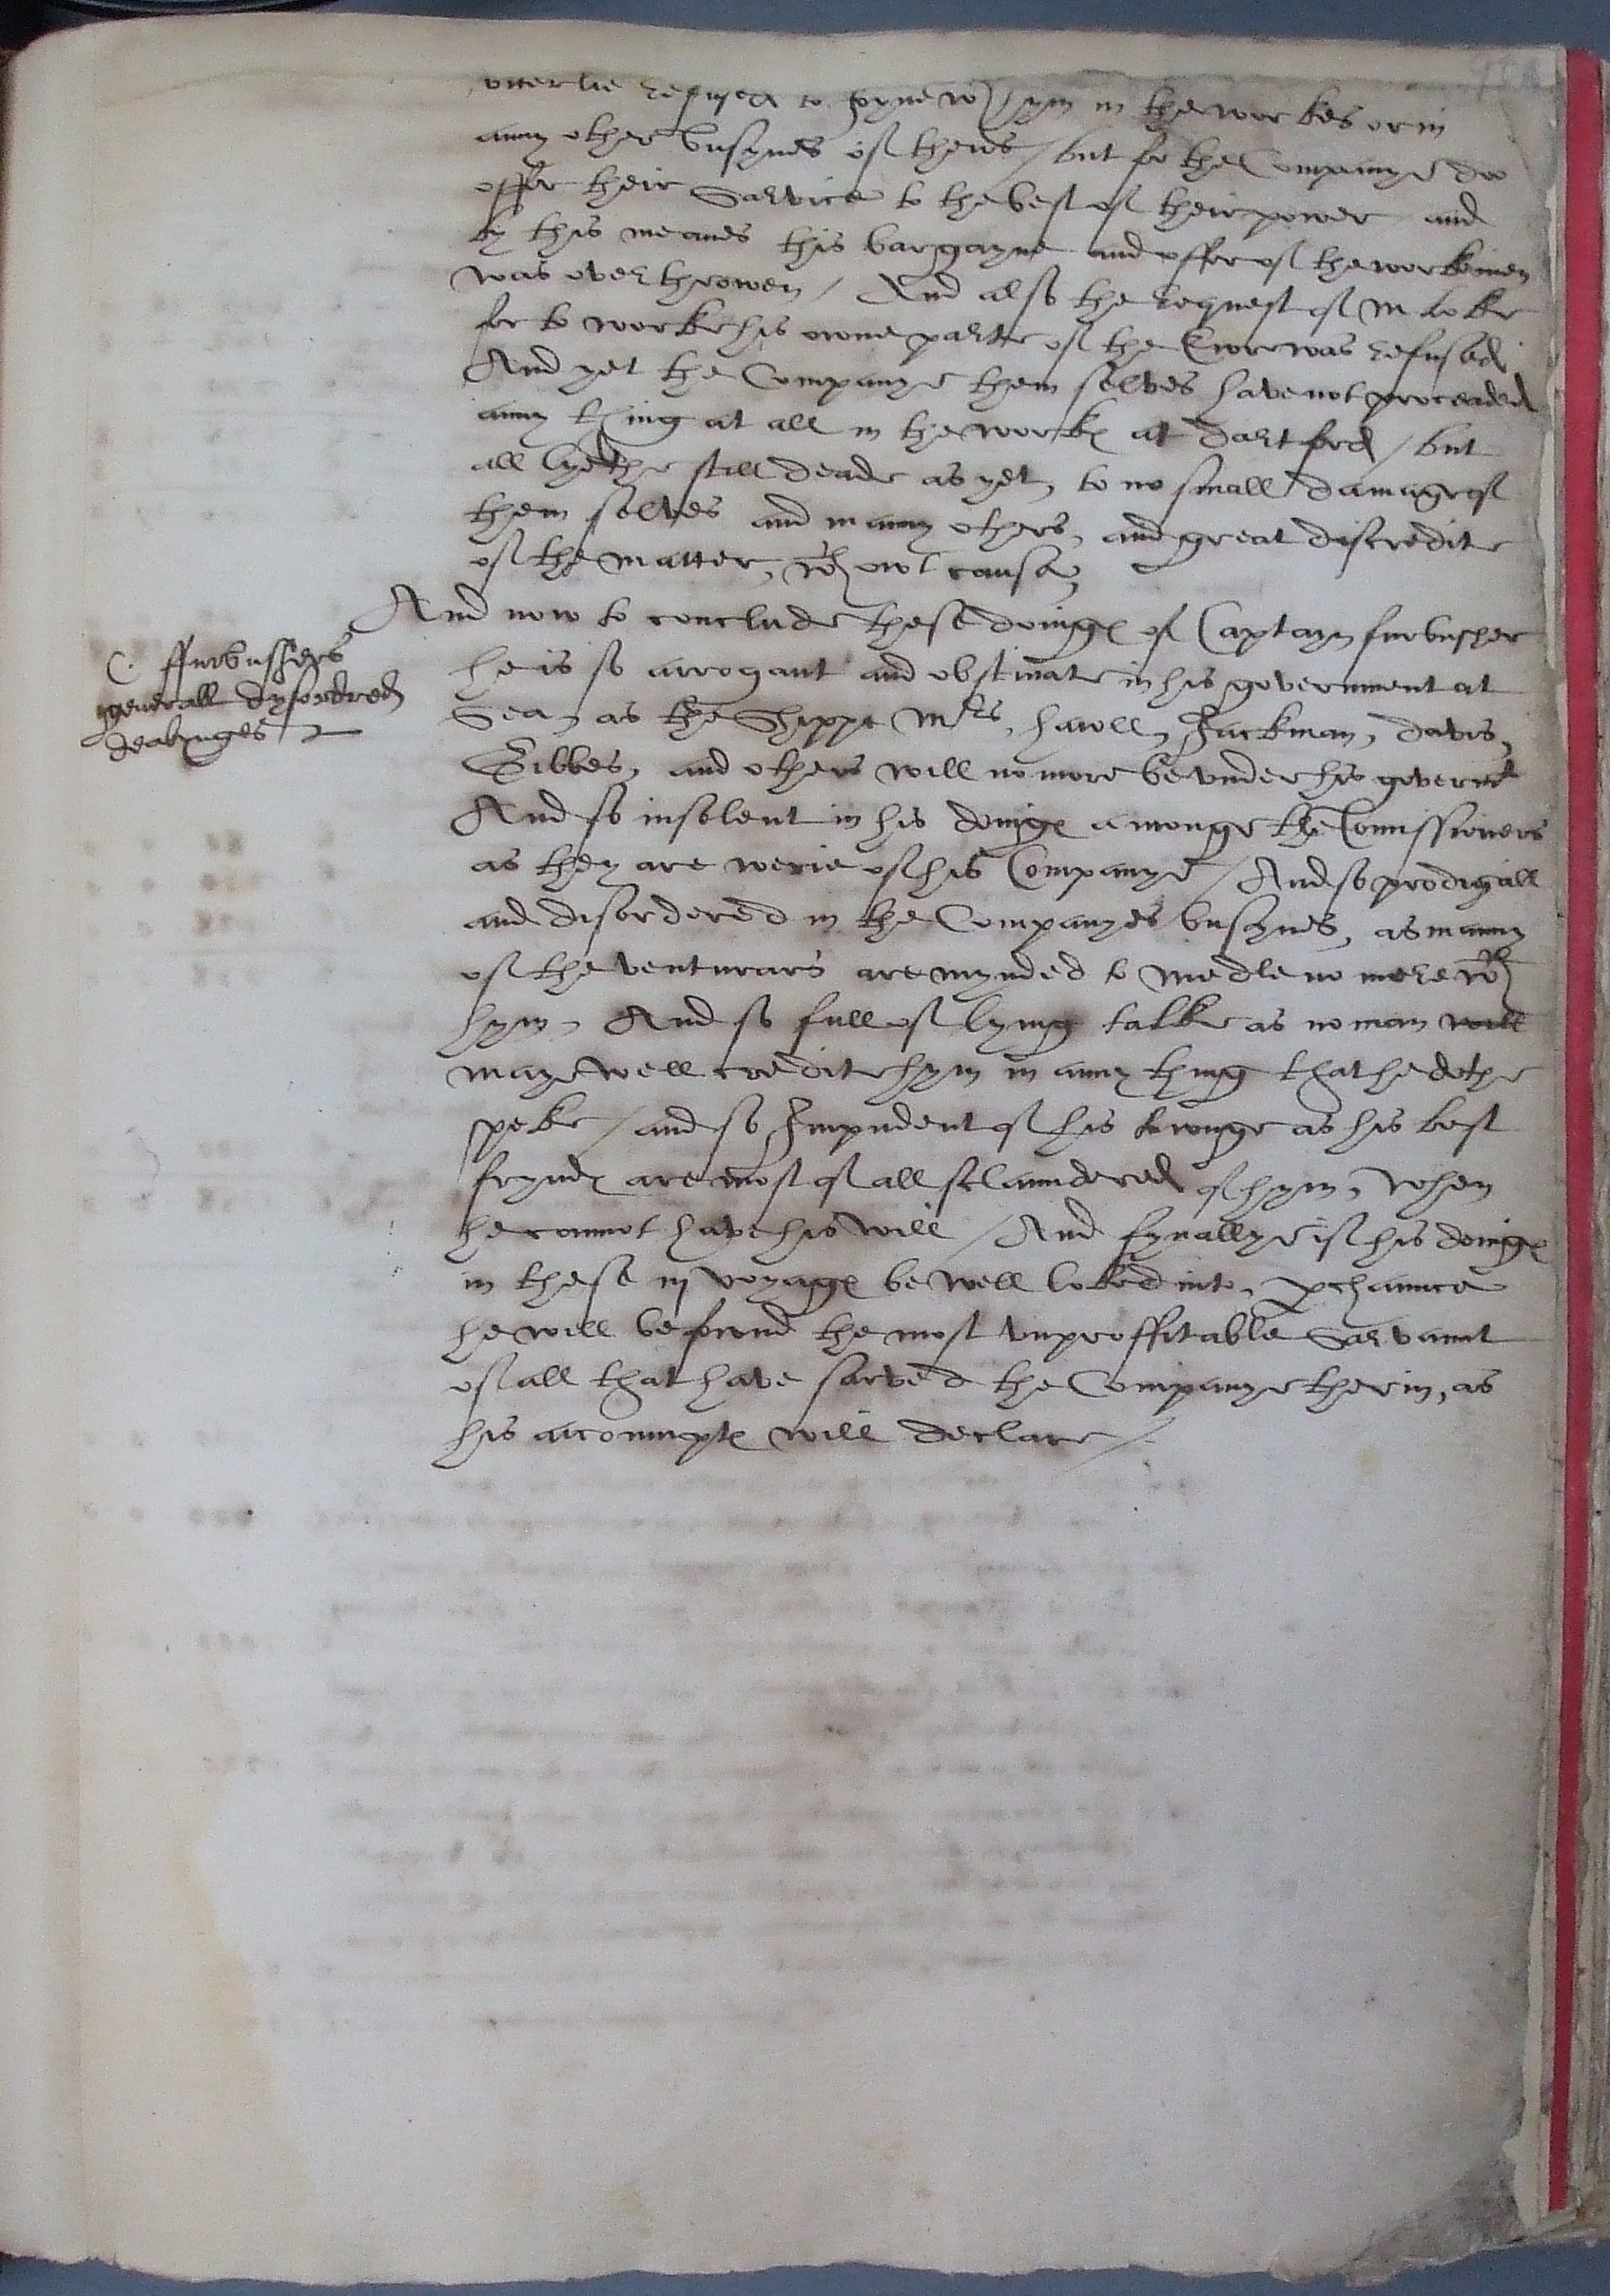 utterlie refused to Joyne wth hym in the workes or in
anny other busynes of theirs / but for the Companye doo
offer their Sarvice to the best of their power and
by this meanes this bargayne and offer of the workemen
was overthrowen / And also the request of M Loke
for to worke his owne parte of the Ewre was refused
And yet the Companye them selves have not proceaded
anny thing at all in the works at dartford / but
all lyethe still deade as yet, to no small damage of
them selves and manny others, and great discredite
of the matter, wthowt cause,
And now to conclude these doings of Captayn furbusher
C. ffurbusshers
generall dysordred
dealynges
he is so arrogant and obstinate in his government at
Sea, as the Shippe Mrs, hawll, Jackman, davis,
Gibbes, and others will no more be under his governt
And so insolent in his doings amonge the Comissioners
as they are werie of his Companye / And so prodigall
and disordered in the Companyes busynes, as manny
of the venturars are mynded to medle no more wth
hym, And so full of lying talke as no man will
maye well credite hym in anny thing that he dothe
speke / and so Impudent of his townge as his best
frynds are most of all sclaundered of hym, when
he cannot have his will / And fynallye if his doings
in these iij voyages be well loked into, pchaunce
he will be fownd the most unproffitable Sarvannt
of all that have sarved the Companye therin, as
his accoumpts will declare /